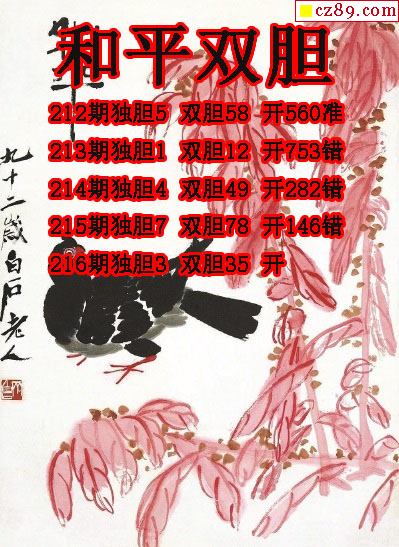 cz89.com
和平
和平双胆
212期独胆5 双胆58 开560准
213期独胆1 双胆12 开753错
214期独胆4 双胆49 开282错
215期独胆7 双胆78 开146错
216期独胆3 双胆35 开
九十二岁白石老人